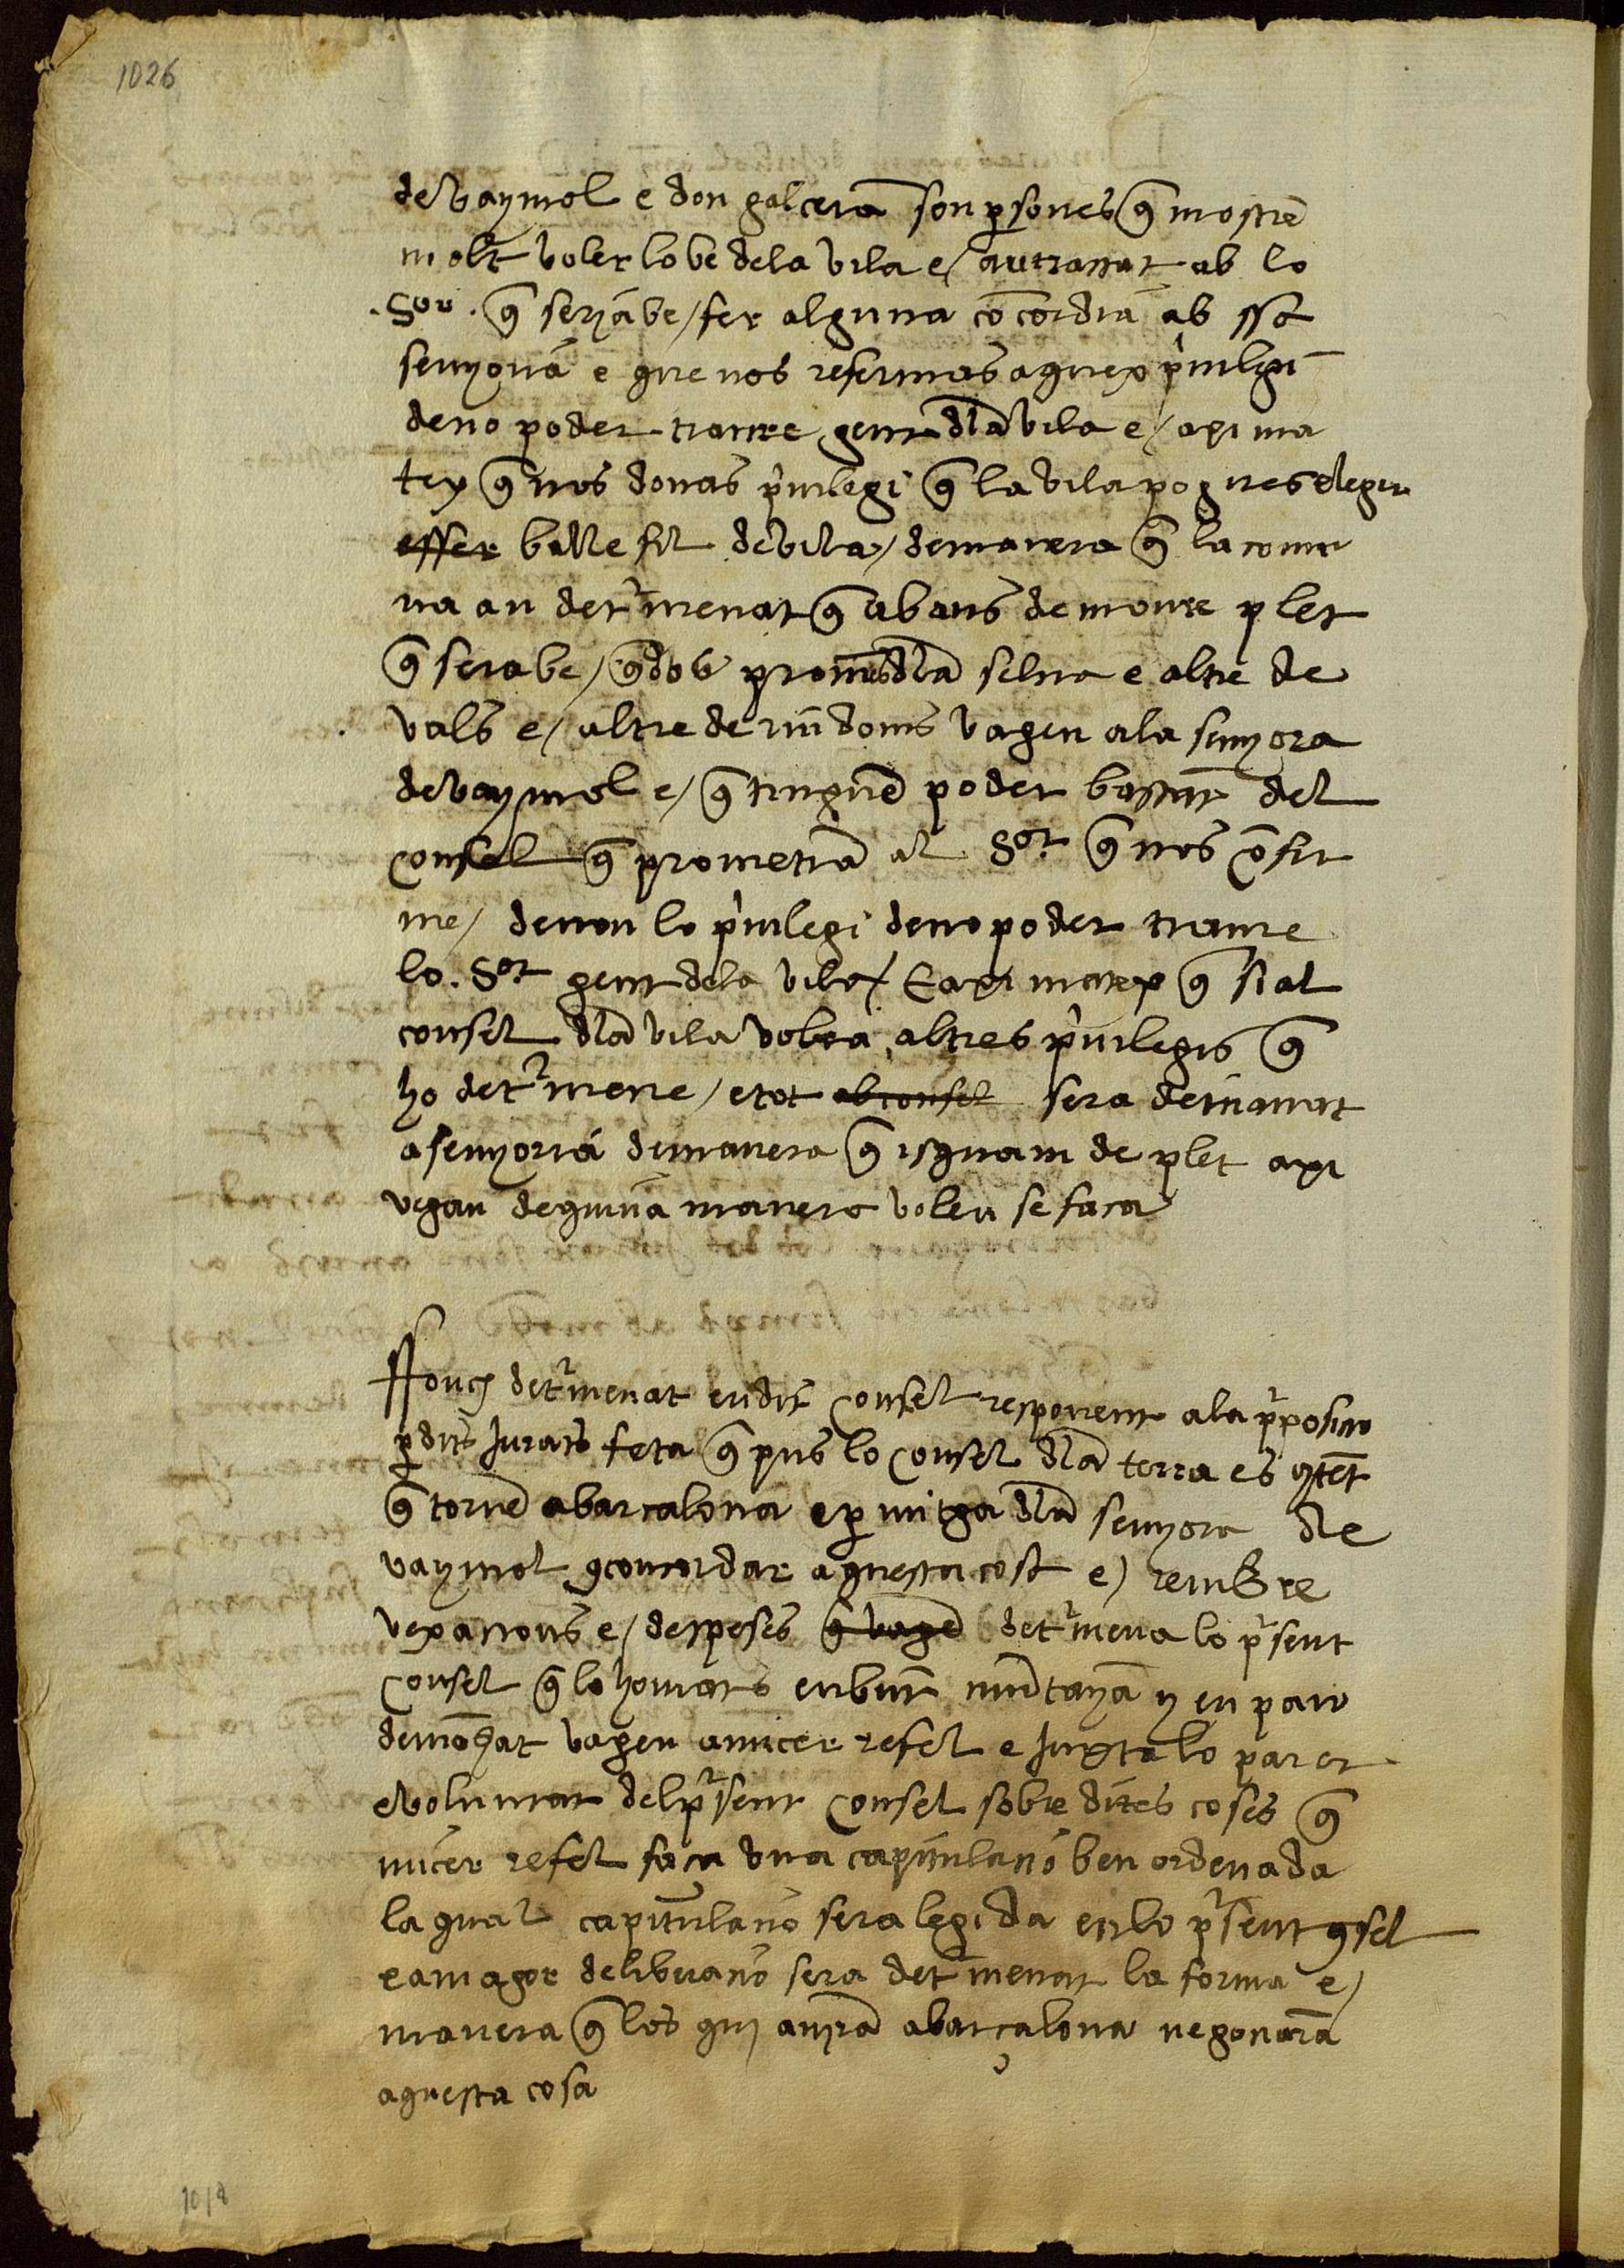 1026
de vaymol e don galcera son psones q mostre
molt voler lo be dela vila e / an trattat ab lo
.Sor. q seria be / fer alguna cocordia ab ssa
senyoria e que nos refermas aquex priulegi
de no poder traure gent dla vila e / axi ma
tex q nos donas priuilegi q la vila pogues elegir
esser batlle fil de vila / de manera q la comu
na an determenat q abans de moure plet
q sera be / q dos promes dla selua e altre de
vals e / altre de riudoms vagen ala senyora
de vaymol e / q tingue poder bastant del
consel q prometra al Sor q nos cofir
me / de nou lo priuilegi de no poder traure
lo .Sor gent dela vila / E axi matex q si al
consel dla vila volra altres priuilegis q
ho determene / e tot ab consel sera demanat
a senyoria de manera q isquam de plet axi
vegau de quina manera voleu se faça

Ffonch determenat en dit Consel responent ala pposicio
p dits Jurats feta q pus lo Consel dla terra es cotet
q torne abarcalona e p mitga dla senyora de
vaymol concordar aquesta cost e / rembre
vexacions e / despeses q vage determena lo present
Consel q lo honrats en bnt muntaya y en pau
demonat vagen a micer refel e Juxta lo parer
e voluntat del present Consel sobre dites coses q
micer refel faça vna capitulacio ben ordenada
la qual capitulacio sera legida en lo present consel
e a magor deliberacio sera determenat la forma e /
manera q los qui anira abarçalona negociara
aquesta cosa
1018